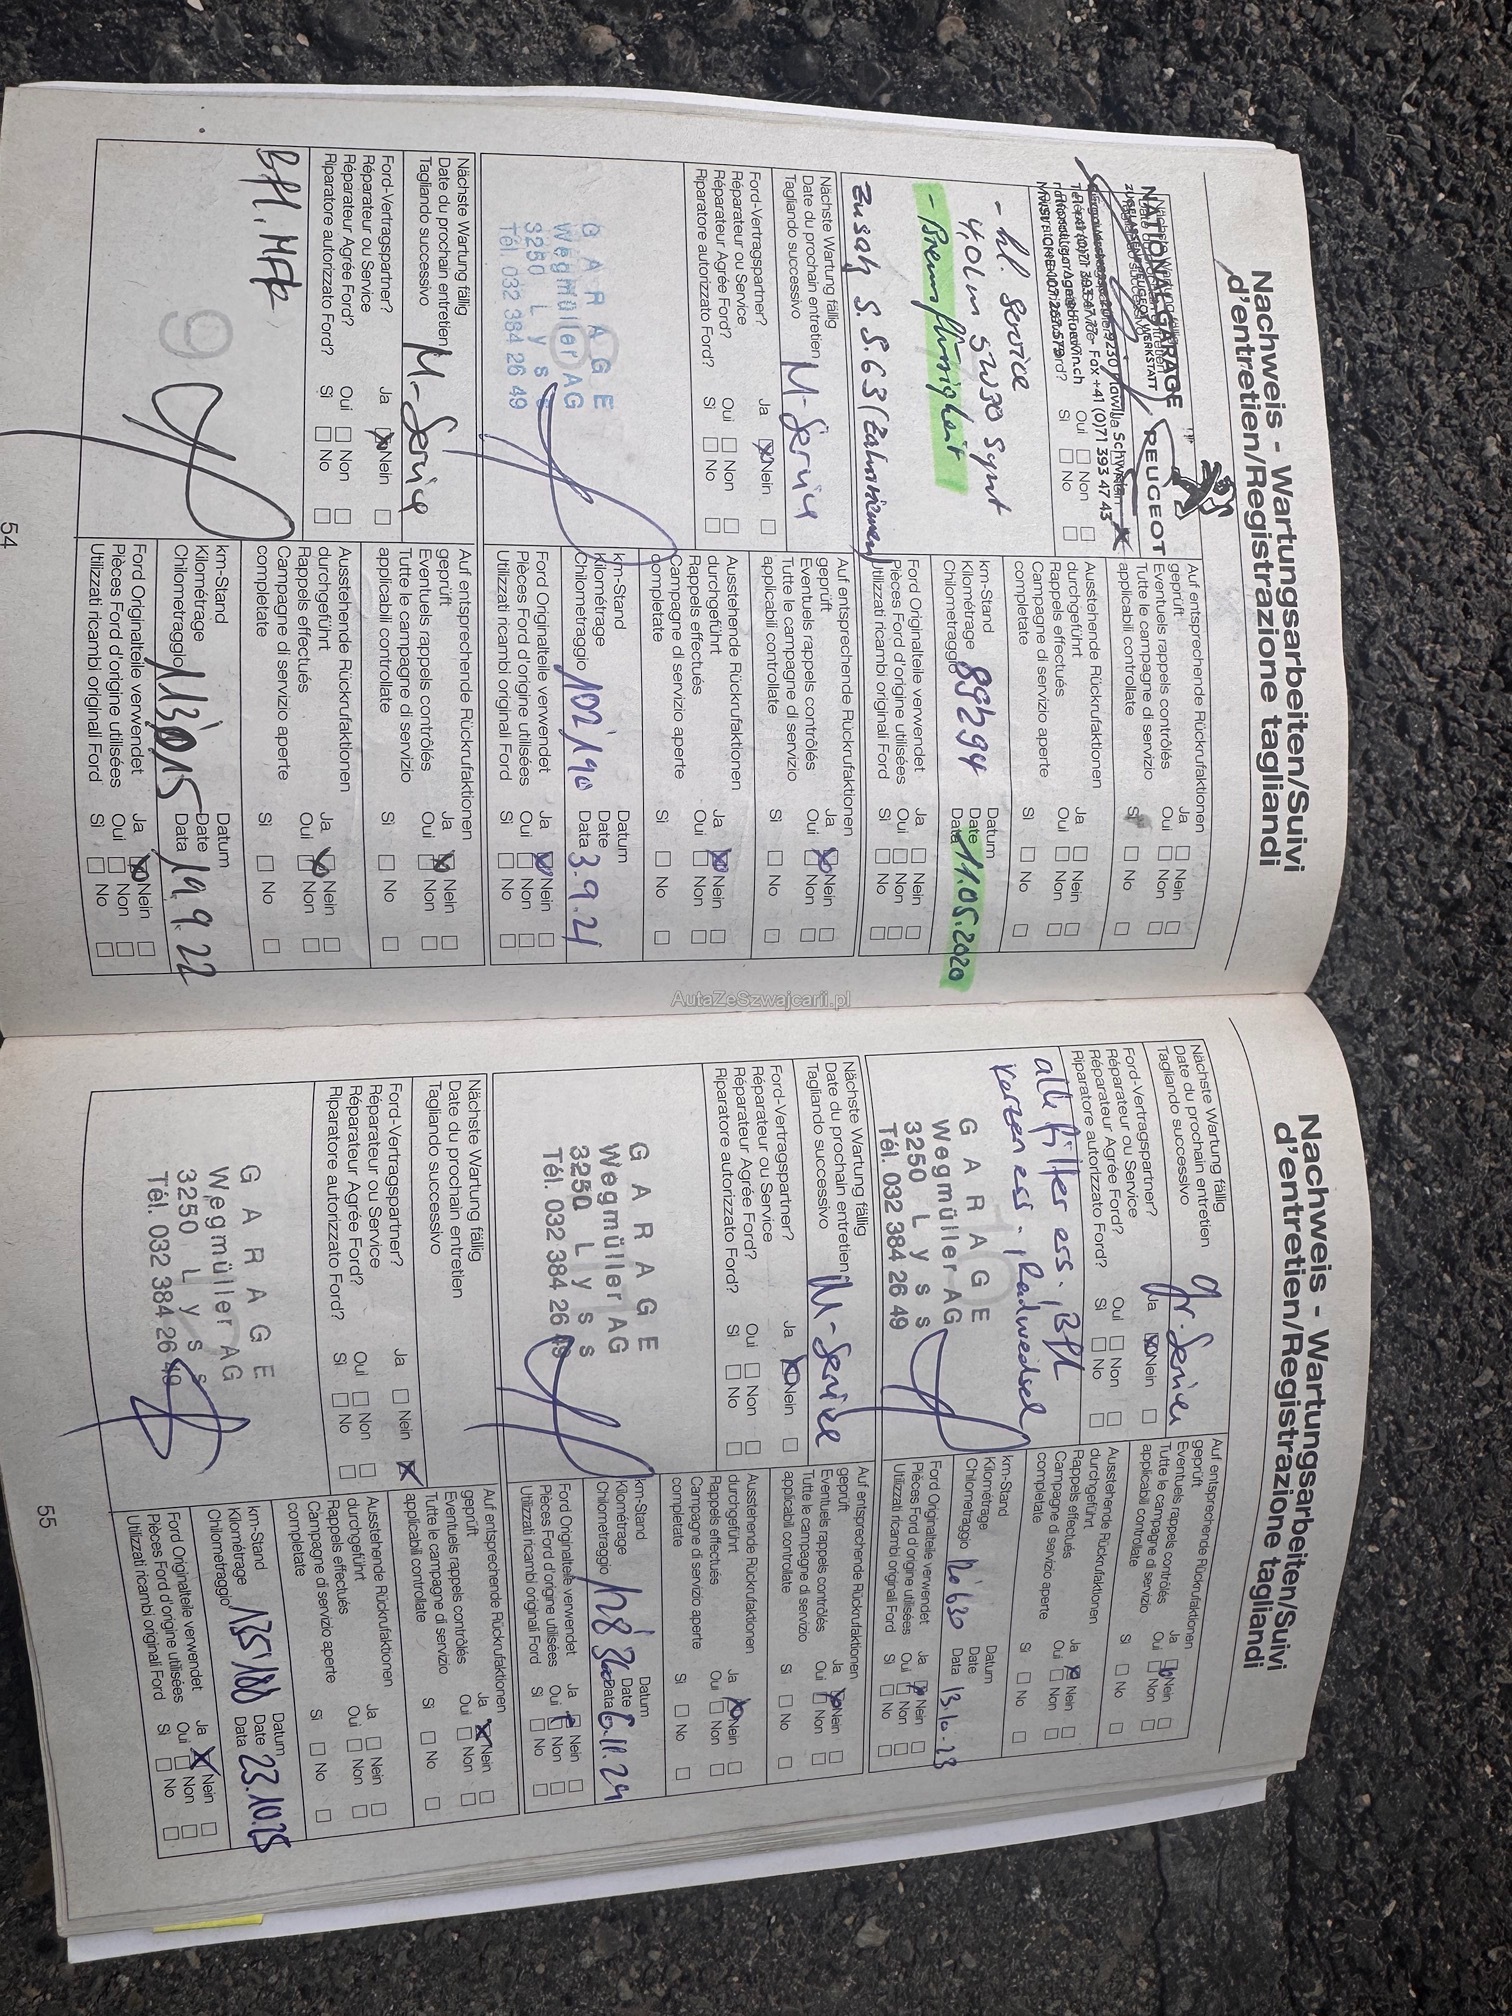 Nachweis - Wartungsarbeiten/Suivi
d'entretien/Registrazione tagliandi
NATIONALGARAGE
PEUGEOT
- kl. Service
4,0L m 5W30 Synt
- Bremsflüssigkeit
Auf entsprechende Rückrufaktionen
geprüft Ja Nein
Eventuels rappels contrôlés Oui Non
Tutte le campagne di servizio
applicabili controllate Sì No
Ausstehende Rückrufaktionen
durchgeführt Ja Nein
Rappels effectués Oui Non
Campagne di servizio aperte
completate Sì No
km-Stand Datum
Kilométrage Date
Chilometraggio Data 11.05.2020
Ford Originalteile verwendet Ja Nein
Pièces Ford d'origine utilisées Oui Non
Utilizzati ricambi originali Ford Sì No
Zusatz S.S.63 (Zahnriemen)
Nächste Wartung fällig
Date du prochain entretien M-Service
Tagliando successivo
Ford-Vertragspartner? Ja Nein
Réparateur ou Service
Réparateur Agrée Ford? Oui Non
Riparatore autorizzato Ford? Sì No
GARAGE
Wegmüller AG
3250 Lyss
Tél. 032 384 26 49
Auf entsprechende Rückrufaktionen
geprüft Ja Nein
Eventuels rappels contrôlés Oui Non
Tutte le campagne di servizio
applicabili controllate Sì No
Ausstehende Rückrufaktionen
durchgeführt Ja Nein
Rappels effectués Oui Non
Campagne di servizio aperte
completate Sì No
km-Stand Datum
Kilométrage 102'190 Date 3.9.21
Chilometraggio Data
Ford Originalteile verwendet Ja Nein
Pièces Ford d'origine utilisées Oui Non
Utilizzati ricambi originali Ford Sì No
Nächste Wartung fällig
Date du prochain entretien M-Service
Tagliando successivo
Ford-Vertragspartner? Ja Nein
Réparateur ou Service
Réparateur Agrée Ford? Oui Non
Riparatore autorizzato Ford? Sì No
9
Auf entsprechende Rückrufaktionen
geprüft Ja Nein
Eventuels rappels contrôlés Oui Non
Tutte le campagne di servizio
applicabili controllate Sì No
Ausstehende Rückrufaktionen
durchgeführt Ja Nein
Rappels effectués Oui Non
Campagne di servizio aperte
completate Sì No
km-Stand Datum
Kilométrage 113'015 Date 19.9.22
Chilometraggio Data
Ford Originalteile verwendet Ja Nein
Pièces Ford d'origine utilisées Oui Non
Utilizzati ricambi originali Ford Sì No
54
AutaZeSzwajcarii.pl
Nachweis - Wartungsarbeiten/Suivi
d'entretien/Registrazione tagliandi
Nächste Wartung fällig
Date du prochain entretien gr. Service
Tagliando successivo
Ford-Vertragspartner? Ja Nein
Réparateur ou Service
Réparateur Agrée Ford? Oui Non
Riparatore autorizzato Ford? Sì No
alle Filter ers.
Kerzen ers., Radwechsel
GARAGE
Wegmüller AG
3250 Lyss
Tél. 032 384 26 49
Auf entsprechende Rückrufaktionen
geprüft Ja Nein
Eventuels rappels contrôlés Oui Non
Tutte le campagne di servizio
applicabili controllate Sì No
Ausstehende Rückrufaktionen
durchgeführt Ja Nein
Rappels effectués Oui Non
Campagne di servizio aperte
completate Sì No
km-Stand Datum
Kilométrage Date
Chilometraggio Data 13.10.23
Ford Originalteile verwendet Ja Nein
Pièces Ford d'origine utilisées Oui Non
Utilizzati ricambi originali Ford Sì No
Nächste Wartung fällig
Date du prochain entretien M-Service
Tagliando successivo
Ford-Vertragspartner? Ja Nein
Réparateur ou Service
Réparateur Agrée Ford? Oui Non
Riparatore autorizzato Ford? Sì No
GARAGE
Wegmüller AG
3250 Lyss
Tél. 032 384 26 49
Auf entsprechende Rückrufaktionen
geprüft Ja Nein
Eventuels rappels contrôlés Oui Non
Tutte le campagne di servizio
applicabili controllate Sì No
Ausstehende Rückrufaktionen
durchgeführt Ja Nein
Rappels effectués Oui Non
Campagne di servizio aperte
completate Sì No
km-Stand Datum
Kilométrage Date 6.11.24
Chilometraggio Data
Ford Originalteile verwendet Ja Nein
Pièces Ford d'origine utilisées Oui Non
Utilizzati ricambi originali Ford Sì No
Nächste Wartung fällig
Date du prochain entretien
Tagliando successivo
Ford-Vertragspartner? Ja Nein
Réparateur ou Service
Réparateur Agrée Ford? Oui Non
Riparatore autorizzato Ford? Sì No
GARAGE
Wegmüller AG
3250 Lyss
Tél. 032 384 26 49
Auf entsprechende Rückrufaktionen
geprüft Ja Nein
Eventuels rappels contrôlés Oui Non
Tutte le campagne di servizio
applicabili controllate Sì No
Ausstehende Rückrufaktionen
durchgeführt Ja Nein
Rappels effectués Oui Non
Campagne di servizio aperte
completate Sì No
km-Stand Datum
Kilométrage 135'188 Date 23.10.25
Chilometraggio Data
Ford Originalteile verwendet Ja Nein
Pièces Ford d'origine utilisées Oui Non
Utilizzati ricambi originali Ford Sì No
55